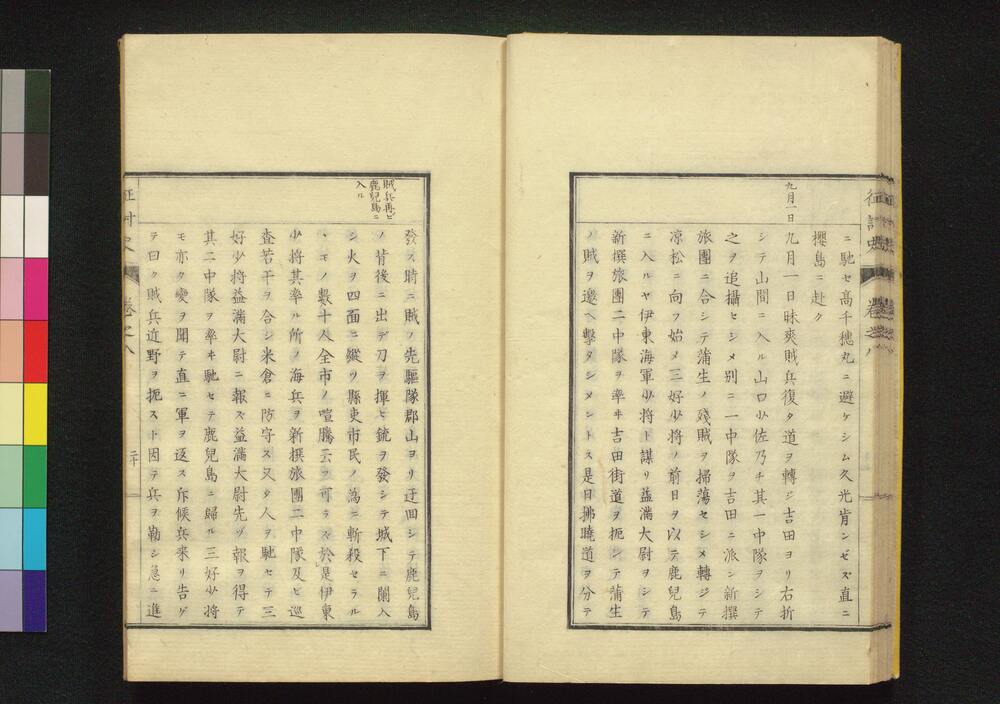 ニ馳セ高千穗丸ニ避ケシム久光肯ンゼズ直ニ
櫻島ニ赴ク
九月一日
九月一日昧爽賊兵復タ道ヲ轉ジ吉田ヨリ右折
シテ山間ニ入ル山口少佐乃チ其一中隊ヲシテ
之ヲ追攝セシメ別ニ一中隊ヲ吉田ニ派シ新撰
旅團ニ合シテ蒲生ノ殘賊ヲ掃蕩セシメ轉ジテ
凉松ニ向フ始メ三好少將ノ前日ヲ以テ鹿兒島
ニ入ルヤ伊東海軍少將ト謀リ益滿大尉ヲシテ
新撰旅團二中隊ヲ率ヰ吉田街道ヲ扼シテ蒲生
ノ賊ヲ邀ヘ擊タシメントス是日拂曉道ヲ分テ
賊兵再ビ
鹿兒島ニ
入ル
發ス時ニ賊ノ先驅隊郡山ヨリ迂回シテ鹿兒島
ノ背後ニ出デ刀ヲ揮ヒ銃ヲ發シテ城下ニ闌入
シ火ヲ四面ニ縱ツ縣吏市民ノ爲ニ斬殺セラル
ヽモノ數十人全市ノ喧騰云フ可ラズ於是伊東
少將其率ル所ノ海兵ヲ新撰旅團二中隊及ビ巡
查若干ヲ合シ米倉ヒ防守ス又タ人ヲ馳セテ三
好少將益滿大尉ニ報ズ益滿大尉先ヅ報ヲ得テ
其二中隊ヲ率ヰ馳セテ鹿兒島ニ歸ル三好少將
モ亦タ變ヲ聞テ直ニ軍ヲ返ス斥候兵來リ告ゲ
テ曰ク賊兵近野ヲ扼スト因テ兵ヲ勒シ急ニ進
征討史 卷之八 二十